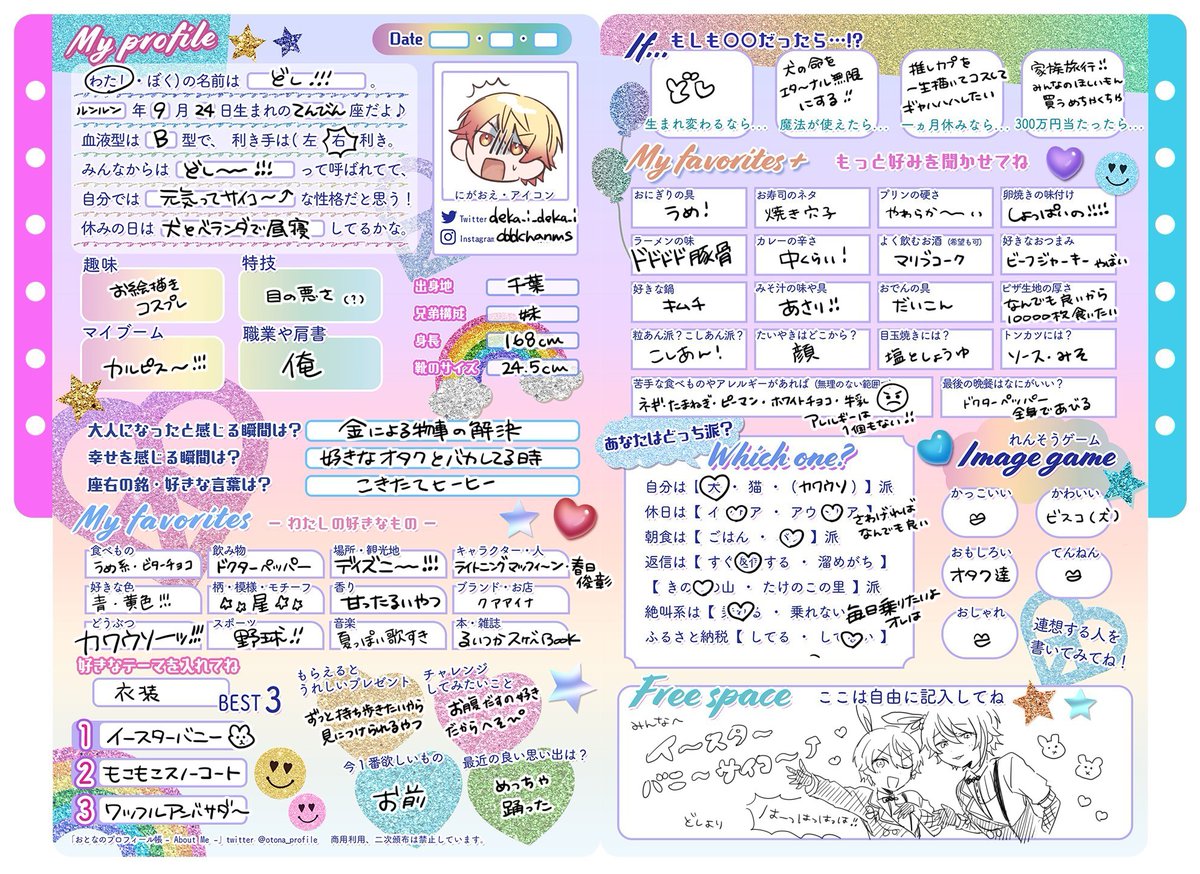 My profile
Date
(わたし・ぼく)の名前は どし!!!
ルンルン 年 9 月 24 日生まれの てんびん 座だよ♪
血液型は B 型で、 利き手は(左・右)利き。
みんなからは どし〜〜!!! って呼ばれてて、
自分では 元気ってサイコ〜↗ な性格だと思う!
休みの日は 犬とベランダで昼寝 してるかな。
にがおえ・アイコン
Twitter deka_i_deka_i
Instagram dddkhanms
趣味
お絵描き
コスプレ
特技
目の悪さ(?)
マイブーム
カルピス〜!!!
職業や肩書
俺
出身地 千葉
兄弟構成 妹
身長 168cm
靴のサイズ 24.5cm
大人になったと感じる瞬間は? 金による物事の解決
幸せを感じる瞬間は? 好きなオタクとバカしてる時
座右の銘・好きな言葉は? こきたてヒーヒー
My favorites ーわたしの好きなものー
食べもの
うめ系・ビターチョコ
飲み物
ドクターペッパー
場所・観光地
ディズニ〜!!!
キャラクター・人
ライトニングマックィーン・春日俊彰
好きな色
青・黄色!!!
柄・模様・モチーフ
☆☆星☆☆
香り
甘ったるいやつ
ブランド・お店
クアアイナ
どうぶつ
カワウソーッ!!!
スポーツ
野球!!
音楽
夏っぽい歌すき
本・雑誌
るいつかスケベBOOK
好きなテーマを入れてね
衣装
BEST 3
1 イースターバニー
2 もこもこスノーコート
3 ワッフルアンバサダー
もらえると
うれしいプレゼント
ずっと持ち歩きたいやら
見につけられるやつ
チャレンジ
してみたいこと
お腹だすの好き
だからへそピ
今1番欲しいもの
お前
最近の良い思い出は?
めっちゃ
踊った
「おとなのプロフィール帳 - About Me -」twitter @otona_profile 商用利用、二次頒布は禁止しています。
If... もしも〇〇だったら…!?
どし
生まれ変わるなら...
犬の命を
エターナル無限
にする!!
魔法が使えたら...
推しカプを
一生描いてコスして
ギャハハハしたい
一ヵ月休みなら...
家族旅行!!
みんなのほしいもん
買うめちゃくちゃ
300万円当たったら...
My favorites+ もっと好みを聞かせてね
おにぎりの具
うめ!
お寿司のネタ
焼き穴子
プリンの硬さ
やわらか〜〜い
卵焼きの味付け
しょっぱいの!!!!
ラーメンの味
ドドドド豚骨
カレーの辛さ
中くらい!
よく飲むお酒(希望も可)
マリブコーク
好きなおつまみ
ビーフジャーキーやばい
好きな鍋
キムチ
みそ汁の味や具
あさり!!
おでんの具
だいこん
ピザ生地の厚さ
なんでも良いから
10000枚食いたい
粒あん派?こしあん派?
こしあん!
たいやきはどこから?
顔
目玉焼きには?
塩としょうゆ
トンカツには?
ソース・みそ
苦手な食べものやアレルギーがあれば(無理のない範囲
ネギ・たまねぎ・ピーマン・ホワイトチョコ・牛乳
アレルギーは
1個もない!!
最後の晩餐はなにがいい?
ドクターペッパー
全身であびる
あなたはどっち派?
Which one?
自分は【犬・猫・(カワウソ)】派
休日は【イ ア・アウ ア】
さわげれば
なんでも良い
朝食は【ごはん・パン】派
返信は【すぐ返信する・溜めがち】
【きのこの山・たけのこの里】派
絶叫系は【 る・乗れない
毎日乗りたいよ
オレは
ふるさと納税【してる・して い】
れんそうゲーム
Image game
かっこいい
かわいい
ビスコ(犬)
おもしろい
オタク達
てんねん
おしゃれ
連想する人を
書いてみてね!
Free space ここは自由に記入してね
みんなへ
イースター
バニーサイコ〜↗
はーっはっはっは!!
どしより